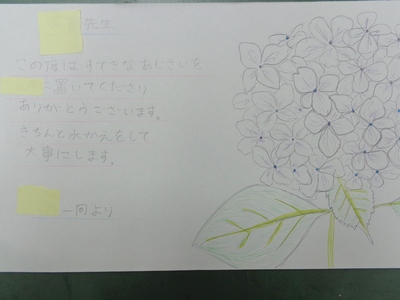 先生
この度はすてきなあじさいを
に置いてくださり
ありがとうございます。
きちんと水かえをして
大事にします。
一同より